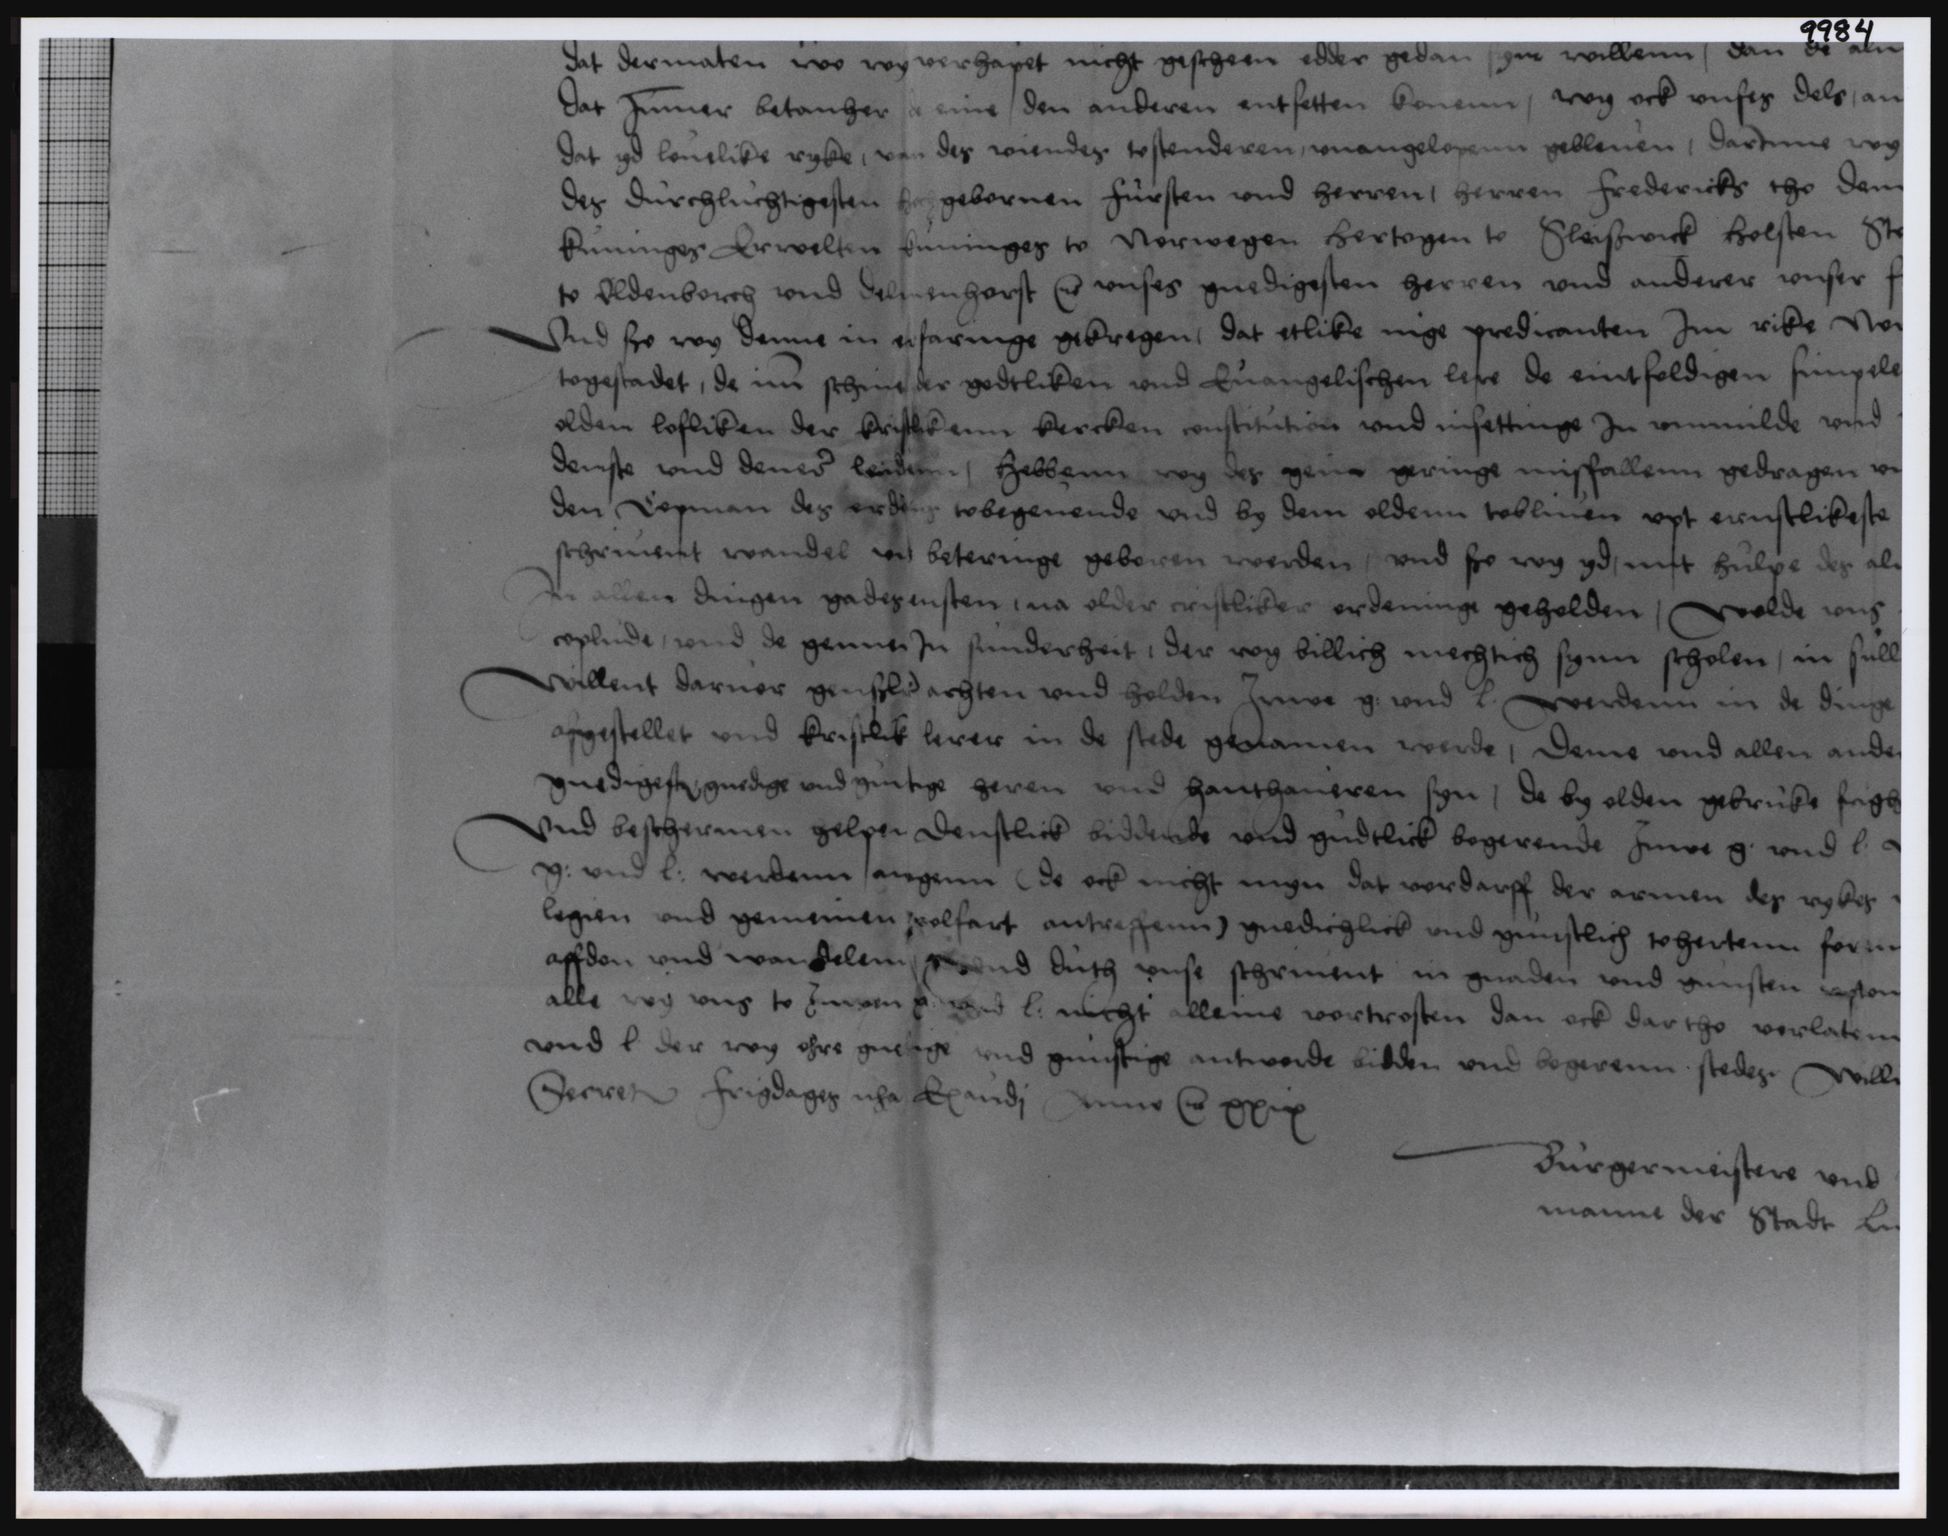 9984
dat dermaten wo wy verhapet nicht gescheen edder gedan syn willenn / dan de alm
dat Jummer betanher de eine / den anderen entsetten konenn / wy ock vnses dels / an
dat yd louelike ryke / van des viendes tostenderen / vnangelopenn gebleuen / darinne wy
des durchluchtigesten hochgebornen fursten vnd herren / herren Fredericks tho Denn
kuninges Erwelten kuninges to Norwegen hertogen to Sleißwick Holsten Sto
to Oldenborch vnd Delmenhorst &c vnses gnedigesten herren vnd anderer vnser f
Vnd szo wy denne in erfaringe gekregen / dat etlike nige predicanten Im rike Nor
togestadet / de im schine der godtliken vnd Euangelischen lere de eintfoldigen simpele
olden lofliken der kristlikenn kercken constitution vnd insettinge In vnmilde vnd
 vnd leidenn / Hebbenn wy des gein geringe missfallenn gedragen vn
den Copman des ordens tobegeuende vnd by dem oldenn tobliuen vpt ernstlikeste
schriuent wandel vnd beteringe geboren werden / vnd szo wy yd / mit hulpe des al
In allen dingen gadesensten / na older cristliker ordeninge geholden / Wolde vns
coplude / vnd de gennen In sunderheit / der wy billich mechtich synn scholen / in sull
Willent daruor gensslich achten vnd holden Juwe g: vnd l. werdenn in de dinge
afgestellet vnd kristlik lerer in de stede genamen werde / Deme vnd allen ander
gnedigeste, gnedige vnd gunstige heren vnd hanthaueren syn / de by olden gebruke
Vnd beschermen helpen Denstlick biddende vnd gudtlick begerende Juwe g: vnd l.
g: vnd l: werdenn angenn (de ock nicht myn dat vordarff der armen des rykes
legien vnd gemeinen wolfart antreffenn) gnedichlick vnd gunstlich tohertenn form
affdon vnd wandelenn vnd duth vnse schriuent in gnaden vnd gunsten vpton
alle wy vns to Juwen g: vnd l: nicht alleine vortrosten dan ock dartho verlatenn
vnd l der wy ohre gnedige vnd gunstige antworde bidden vnd begerenn stedes. Wille
Secrete Frigdages nha Exaudi Anno &c xxix
Burgermeistere vnd
manne der Stadt Lu